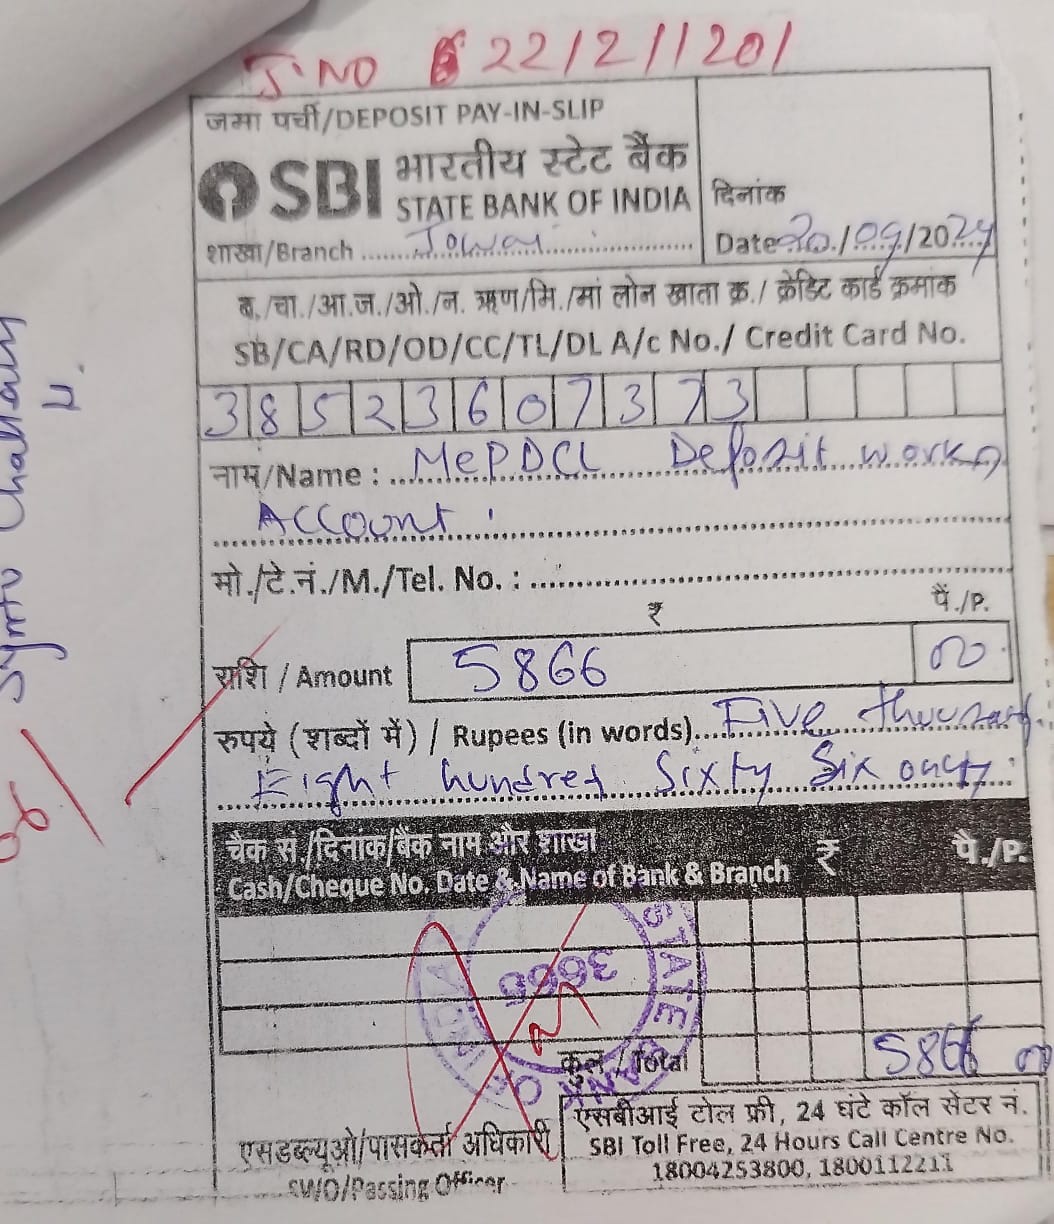 J. NO 22121201
जमा पर्ची/DEPOSIT PAY-IN-SLIP
SBI भारतीय स्टेट बैंक
STATE BANK OF INDIA
शाखा/Branch ........ Jowai ........
दिनांक
Date 20/09/2024
ब./चा./आ.ज./ओ./न. ऋण/मि./मां लोन खाता क्र./ क्रेडिट कार्ड क्रमांक
SB/CA/RD/OD/CC/TL/DL A/c No./ Credit Card No.
38523607373
नाम/Name : MePDCL Deposit works
Account
मो./टे.नं./M./Tel. No. :
₹ पैं./P.
राशि / Amount 5866 00
रुपये (शब्दों में) / Rupees (in words) Five thousand
Eight hundred Sixty Six only
चैक सं./दिनांक/बैंक नाम और शाखा ₹ पै./P.
Cash/Cheque No. Date & Name of Bank & Branch
STATE BANK OF INDIA
कुल / Total 5866 00
एसडब्ल्यूओ/पासकर्ता अधिकारी
SWO/Passing Officer
एसबीआई टोल फ्री, 24 घंटे कॉल सेंटर नं.
SBI Toll Free, 24 Hours Call Centre No.
18004253800, 1800112211